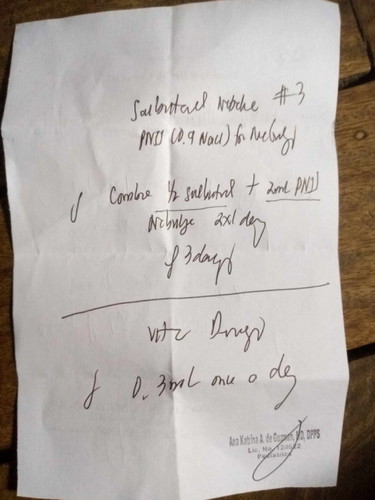 Salbutamol Nebule #3
PNSS (0.9 NaCl) for Nebulizₓ
Combine 1/2 salbutamol + 2mL PNSS
Nebulize 2x1 day
3 days
Vit C Drops
0.3mL once a day
Ana Katrina A. de Guzman, MD, DPPS
Lic. No.
Pediatrics